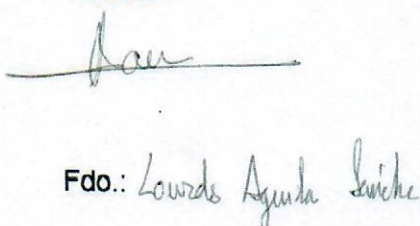 Fdo.: Lourdes Aguila Sánchez